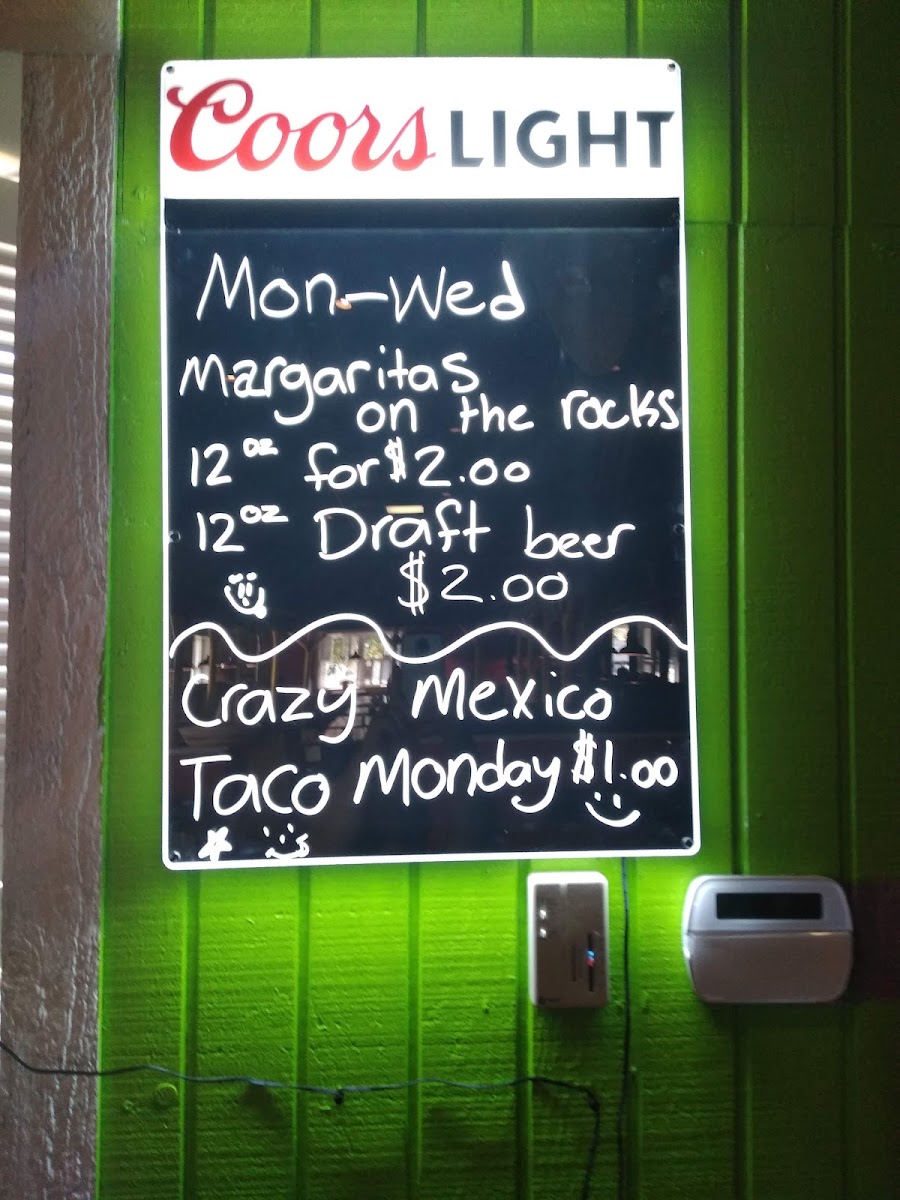 Coors LIGHT
Mon-Wed
Margaritas
on the rocks
12 oz for $2.00
12 oz Draft beer
$2.00
Crazy Mexico
Taco Monday $1.00